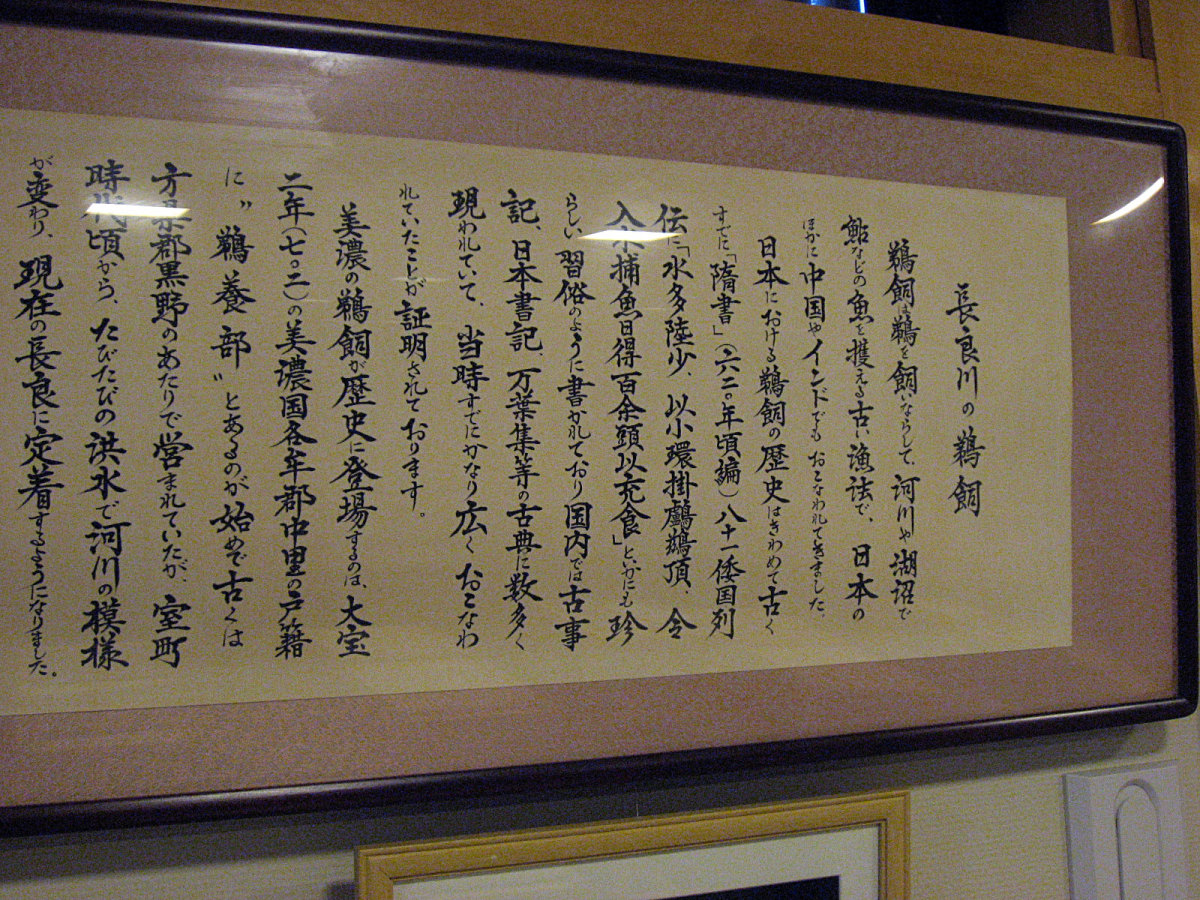 長良川の鵜飼
鵜飼は鵜を飼いならして、河川や湖沼で
鮎などの魚を獲える古い漁法で、日本の
ほかに中国やインドでもおこなわれてきました。
日本における鵜飼の歴史はきわめて古く
すでに「隋書」(六二〇年頃編)八十一倭国列
伝に「水多陸少、以小環掛鸕鷀項、令
入水捕魚日得百余頭以充食」といかにも珍
らしい習俗のように書かれており国内では古事
記、日本書記、万葉集等の古典に数多く
現われていて、当時すでにかなり広くおこなわ
れていたことが証明されております。
美濃の鵜飼が歴史に登場するのは、大宝
二年(七〇二)の美濃国各牟郡中里の戸籍
に〝鵜養部〟とあるのが始めで古くは
方県郡黒野のあたりで営まれていたが、室町
時代頃から、たびたびの洪水で河川の模様
が変わり、現在の長良に定着するようになりました。